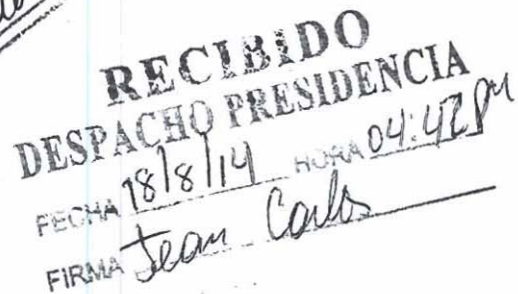 RECIBIDO
DESPACHO PRESIDENCIA
FECHA 18/8/14 HORA 04:42 PM
FIRMA Jean Carlos